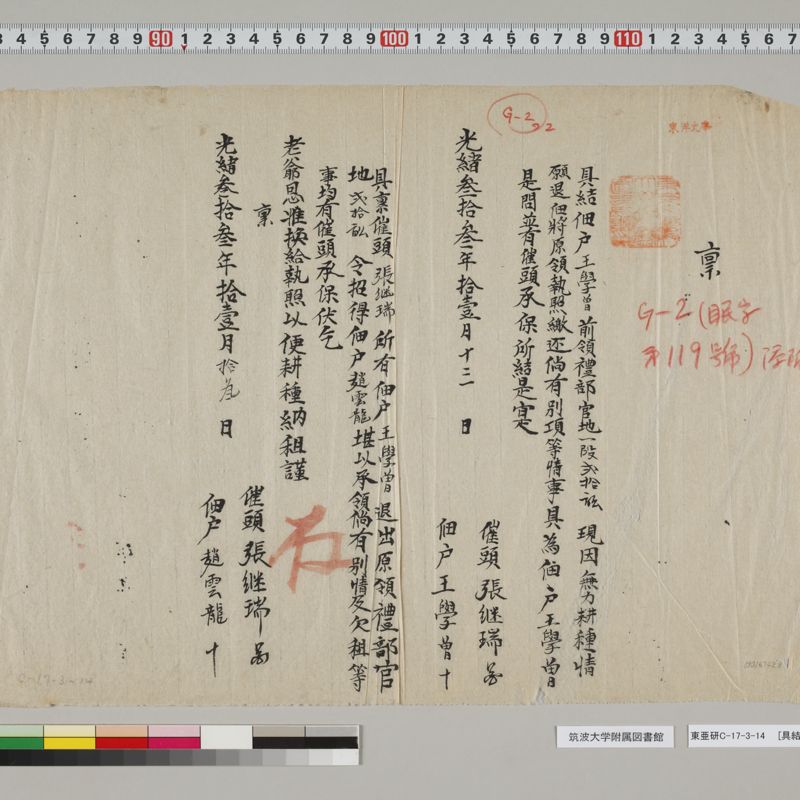 禀
具結佃户王學曽前領禮部官地一段弍拾畝現因無力耕種情
願退佃將原領執照繳还倘有别項等情事具為佃户王學曽
是問並有催頭承保所結是寔
光緒叁拾叁年拾壹月十二日
催頭張继瑞
佃户王學曽十
具禀催頭張继瑞所有佃户王學曽退出原領禮部官
地弍拾畝令招得佃户趙雲龍堪以承領倘有别情及欠租等
事均有催頭承保伏乞
老爺恩准换給執照以便耕種納租謹
禀
光緒叁拾叁年拾壹月拾叁日
催頭張继瑞
佃户趙雲龍十
G-2
22
G-2(眼字
第119號)
C-17-3-14
筑波大学附属図書館
東亜研C-17-3-14 [具結
3 4 5 6 7 8 9 90 1 2 3 4 5 6 7 8 9 100 1 2 3 4 5 6 7 8 9 110 1 2 3 4 5 6 7